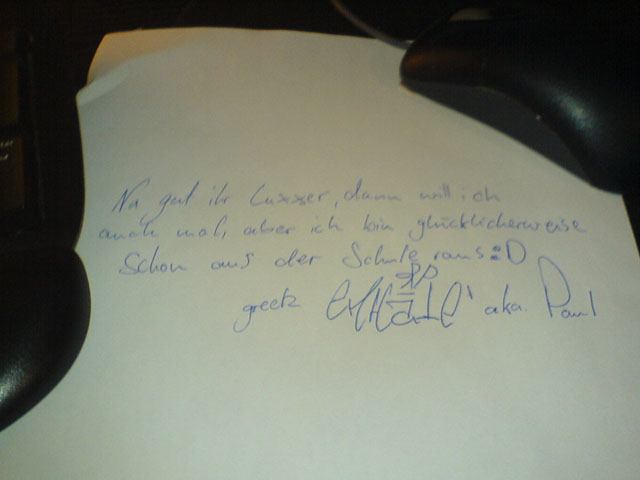 Na gut ihr Luxxer, dann will ich
auch mal, aber ich bin glücklicherweise
Schon aus der Schule raus :D
greetz aka. Paul